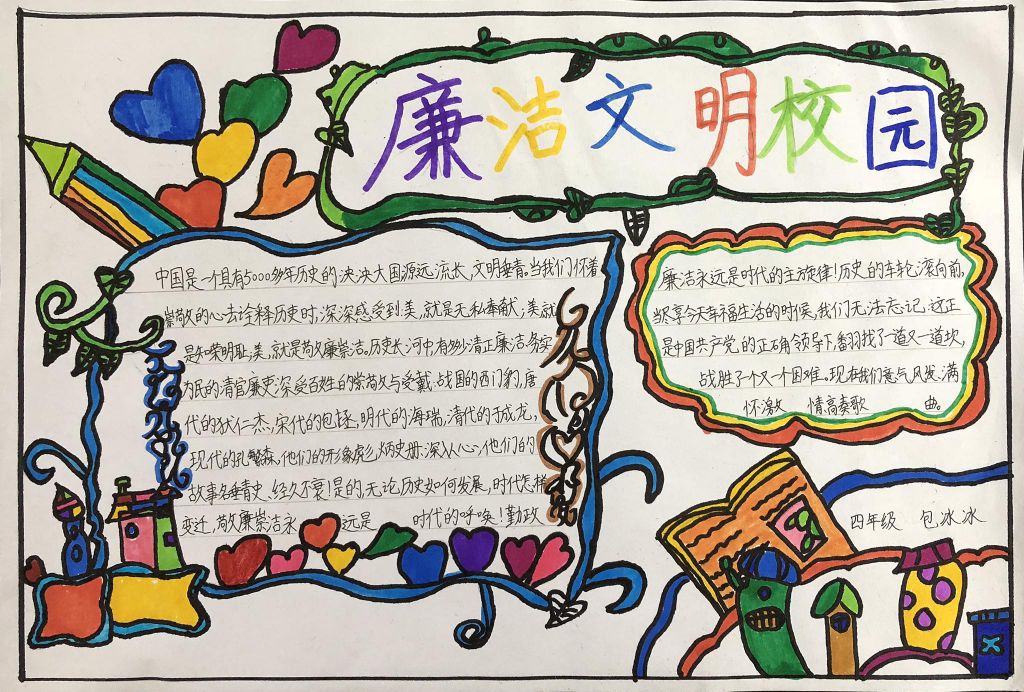 廉洁文明校园
中国是一个具有5000多年历史的泱泱大国源远流长,文明垂青。当我们怀着
崇敬的心去诠释历史时,深深感受到美,就是无私奉献,美就
是知荣明耻,美,就是敬廉崇洁。历史长河中,有多少清正廉洁务实
为民的清官廉吏深受百姓的崇敬与爱戴。战国的西门豹,唐
代的狄仁杰,宋代的包拯,明代的海瑞,清代的于成龙,
现代的孔繁森,他们的形象彪炳史册,深入人心,他们的
故事名垂青史、经久不衰!是的,无论历史如何发展,时代怎样
变迁,敬廉崇洁永远是时代的呼唤!勤政
廉洁永远是时代的主旋律!历史的车轮滚滚向前,
当享今天幸福生活的时候,我们无法忘记,这正
是中国共产党的正确领导下,翻找了一道又一道坎,
战胜了一个又一个困难。现在我们意气风发,满
怀激情高奏歌曲。
四年级 包冰冰